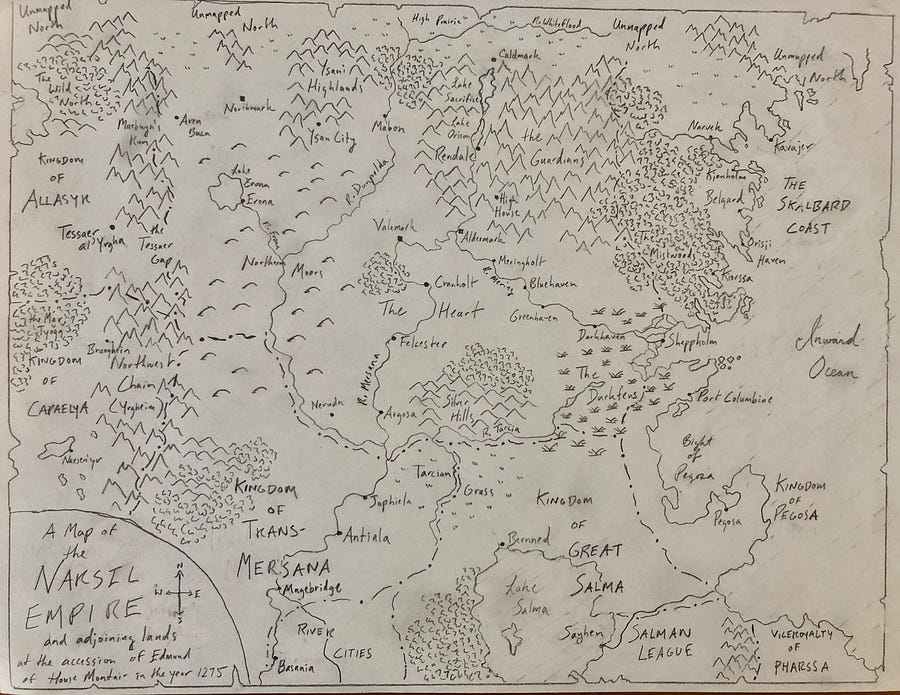 Unmapped
North
Unmapped
North
High Prairie
R. Whiteflood
Unmapped
North
Unmapped
North
The
Wild
North
Ysani
Highlands
Caldmark
Northmark
Aven
Ysan City
Mabon
Lake
Sacrifice
Lake
Rendale
the
Guardians
Narvek
Kavajer
KINGDOM
OF
ALLASYR
Lake
Erona
Erona
R. Erona
High
House
Belgard
THE
SKALBARD
COAST
Tessaer
the
Tessaer
Gap
Valemark
Aldermark
The
Mistwoods
Orisji
Haven
Northern Moors
Meringholt
R. Mering
Bluehaven
Kressa
Cranholt
Greenhaven
The Heart
Darkhaven
Sheppholm
Inward
Ocean
KINGDOM
OF
CAPAELYA
Northwest
Chain
(Yrgheim)
Felcester
R. Mersana
The
Darkfens
Silver
Hills
Port Columbine
Argosa
R. Tarcia
Bight
of
Pegosa
Tarcian
Grass
KINGDOM
OF
TRANS-
MERSANA
Jophiela
Antiala
KINGDOM
OF
GREAT
SALMA
Pegosa
KINGDOM
OF
PEGOSA
Berened
Lake
Salma
A Map of
the
NARSIL
EMPIRE
and adjoining lands
at the accession of Edmund
of House Montair in the year 1275
N
W
E
S
Magebridge
RIVER
CITIES
Basania
Sayhen
SALMAN
LEAGUE
VICEROYALTY
OF
PHARSSA